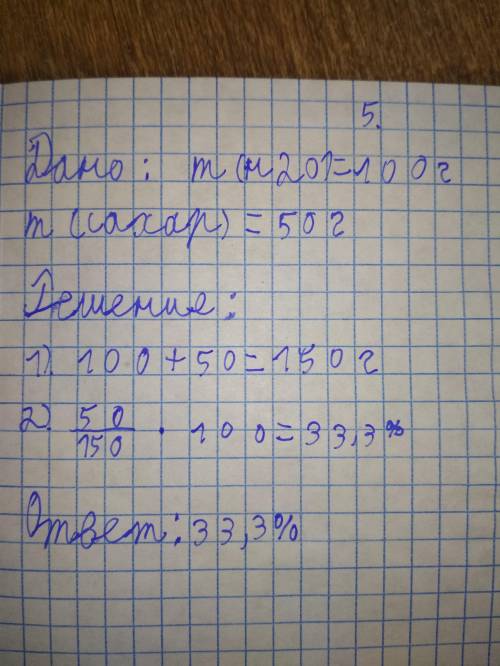 5.
Дано: m(н2о)=100г
m(сахар)=50г
Решения:
1). 100+50=150г
2). 50/150 · 100=33,3%
Ответ: 33,3%